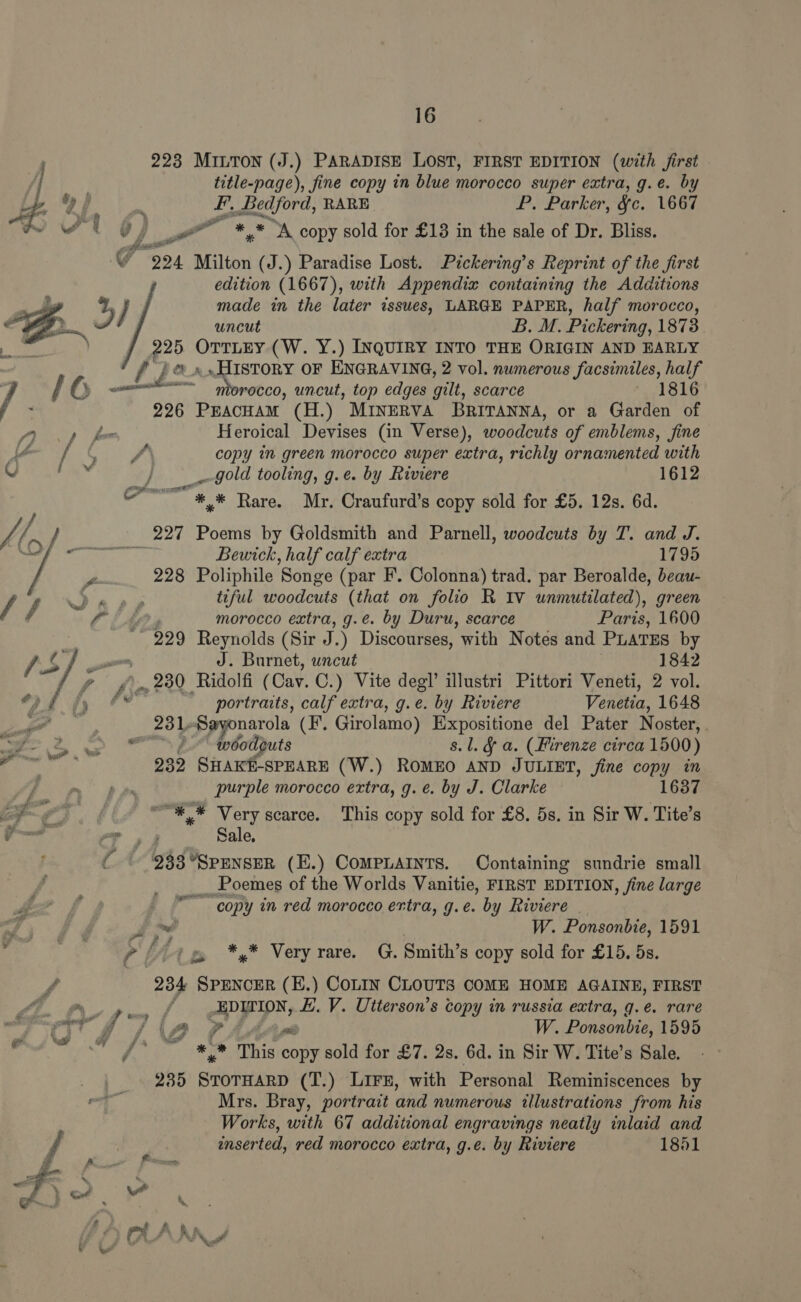 16
223 MILTON (J.) PARADISE LOST, FIRST EDITION (with first
title-page), fine copy in blue morocco super extra, g. e. by
F. Bedford, RARE P. Parker, &c. 1667
*⁎* A copy sold for £13 in the sale of Dr. Bliss.
224 Milton (J.) Paradise Lost. Pickering's Reprint of the first
edition (1667), with Appendix containing the Additions
made in the later issues, LARGE PAPER, half morocco,
uncut B. M. Pickering, 1873
225 OTTLEY (W. Y.) INQUIRY INTO THE ORIGIN AND EARLY
HISTORY OF ENGRAVING, 2 vol. numerous facsimiles, half
morocco, uncut, top edges gilt, scarce 1816
226 PEACHAM (H.) MINERVA BRITANNA, or a Garden of
Heroical Devises (in Verse), woodcuts of emblems, fine
copy in green morocco super extra, richly ornamented with
gold tooling, g.e. by Riviere 1612
*⁎* Rare. Mr. Craufurd's copy sold for £5. 12s. 6d.
227 Poems by Goldsmith and Parnell, woodcuts by T. and J.
Bewick, half calf extra 1795
228 Poliphile Songe (par F. Colonna) trad. par Beroalde, beau-
tiful woodcuts (that on folio R IV unmutilated), green
morocco extra, g.e. by Duru, scarce Paris, 1600
229 Reynolds (Sir J.) Discourses, with Notes and PLATES by
J. Burnet, uncut 1842
230 Ridolfi (Cav. C.) Vite degl' illustri Pittori Veneti, 2 vol.
portraits, calf extra, g.e. by Riviere Venetia, 1648
231 Savonarola (F. Girolamo) Expositione del Pater Noster,
woodcuts s. l. & a. (Firenze circa 1500)
232 SHAKE-SPEARE (W.) ROMEO AND JULIET, fine copy in
purple morocco extra, g. e. by J. Clarke 1637
*⁎* Very scarce. This copy sold for £8. 5s. in Sir W. Tite's
Sale.
233 SPENSER (E.) COMPLAINTS. Containing sundrie small
Poemes of the Worlds Vanitie, FIRST EDITION, fine large
copy in red morocco extra, g.e. by Riviere
W. Ponsonbie, 1591
*⁎* Very rare. G. Smith's copy sold for £15. 5s.
234 SPENCER (E.) COLIN CLOUTS COME HOME AGAINE, FIRST
EDITION, E. V. Utterson's copy in russia extra, g. e. rare
W. Ponsonbie, 1595
*⁎* This copy sold for £7. 2s. 6d. in Sir W. Tite's Sale.
235 STOTHARD (T.) LIFE, with Personal Reminiscences by
Mrs. Bray, portrait and numerous illustrations from his
Works, with 67 additional engravings neatly inlaid and
inserted, red morocco extra, g.e. by Riviere 1851